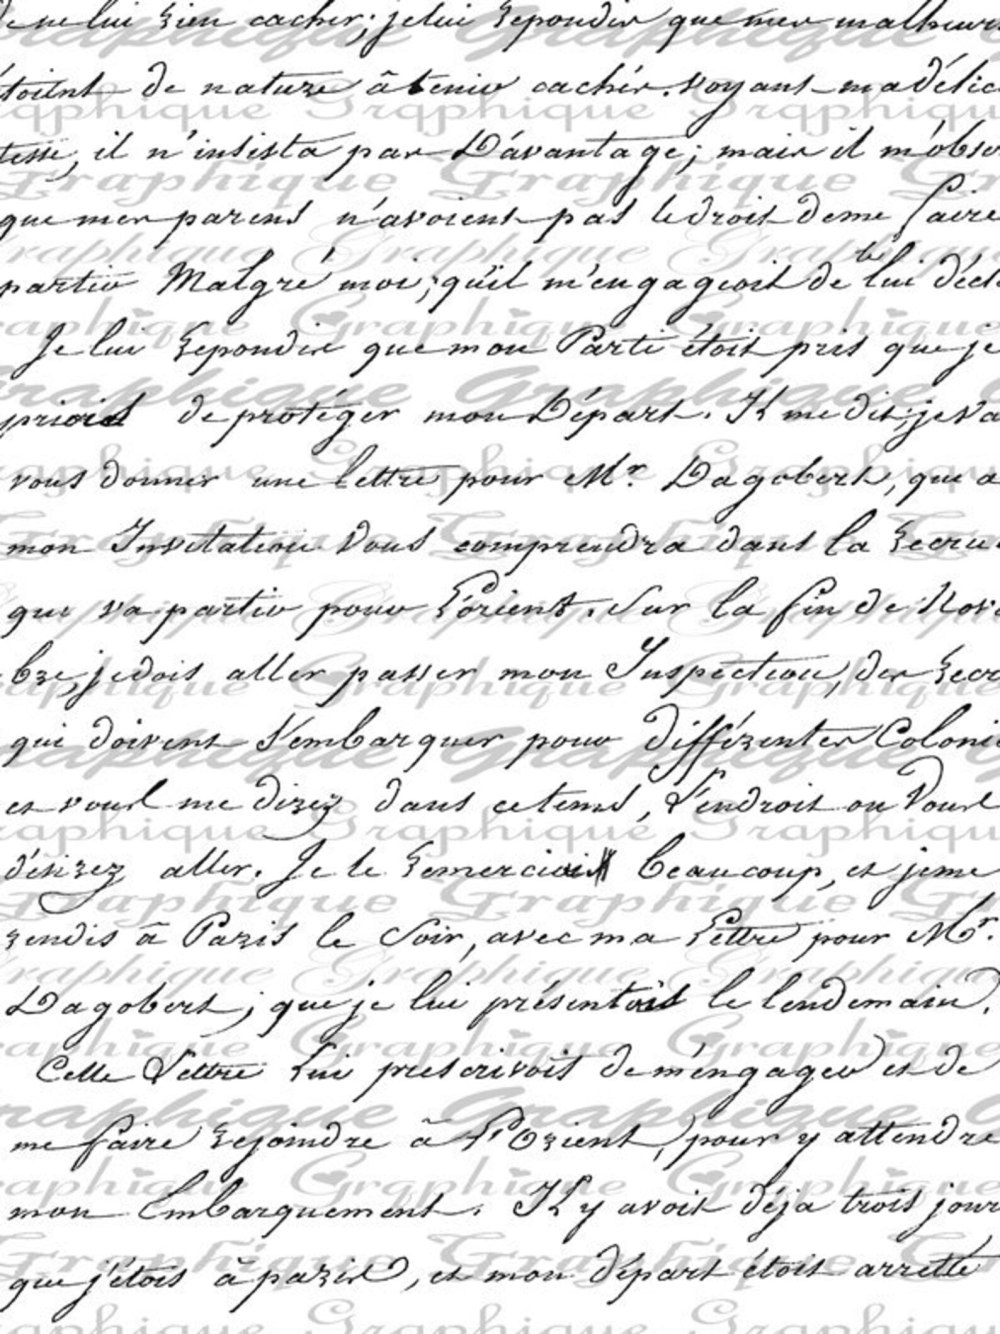 de ne lui rien cacher; je lui repondis que mes malheurs
étoient de nature à tenir cachés. voyant ma délica
tesse, il n'insista pas Davantage; mais il m'obse
que mes parens n'avoient pas le droit de me faire
partir Malgré moi; qu'il m'engageoit de le lui décla
Je lui repondis que mon Parti étoit pris que je
priois de protéger mon Départ. Il me dit; je va
vous donner une lettre pour Mr. Dagobert, que a
mon Invitation vous comprendra dans la recrue
que va partir pour L'orient. Sur la fin de Nove
bre, je dois aller passer mon Inspection, des recr
qui doivent s'embarquer pour différentes Coloni
et vous me direz dans ce tems, l'endroit ou vous
désirez aller. Je le remerciois beaucoup, et je me
rendis à Paris le Soir, avec ma Lettre pour Mr.
Dagobert; que je lui présentois le lendemain.
Cette Lettre Lui prescrivoit de m'engager et de
me faire rejoindre à L'Orient, pour y attendre
mon Embarquement. Il y avoit déja trois jour
que j'étois à paris, et mon départ étoit arretté